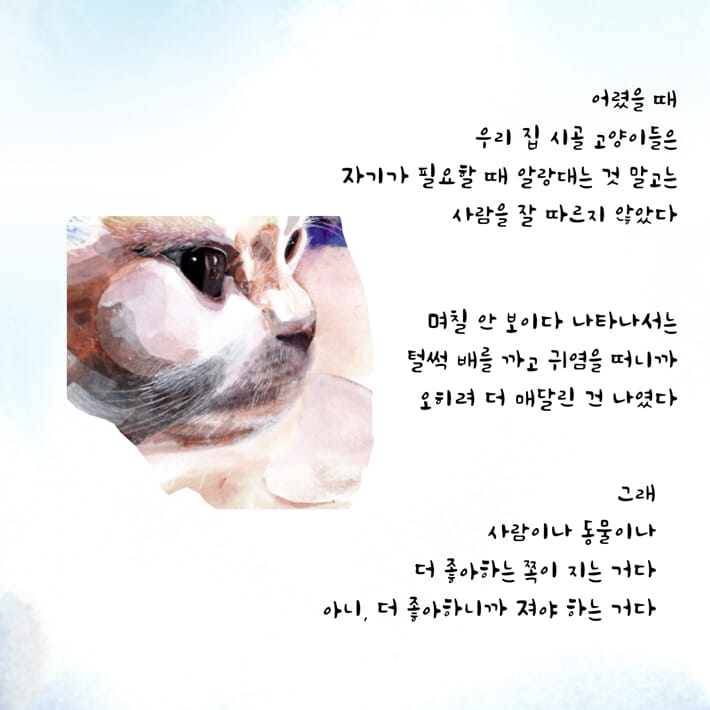 어렸을 때
우리 집 시골 고양이들은
자기가 필요할 때 알랑대는 것 말고는
사람을 잘 따르지 않았다
며칠 안 보이다 나타나서는
털썩 배를 까고 귀염을 떠니까
오히려 더 매달린 건 나였다
그래
사람이나 동물이나
더 좋아하는 쪽이 지는 거다
아니, 더 좋아하니까 져야 하는 거다